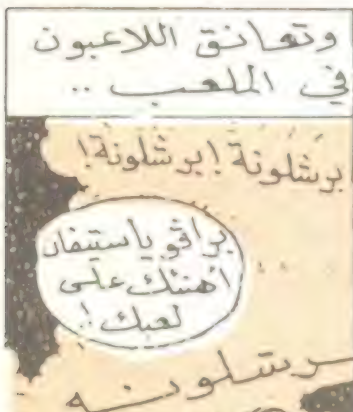 وتعانق اللاعبون
في الملعب ..
برشلونة! برشلونة!
براڤو ياستيفان
أهنئك على
لعبك!
برشلونه